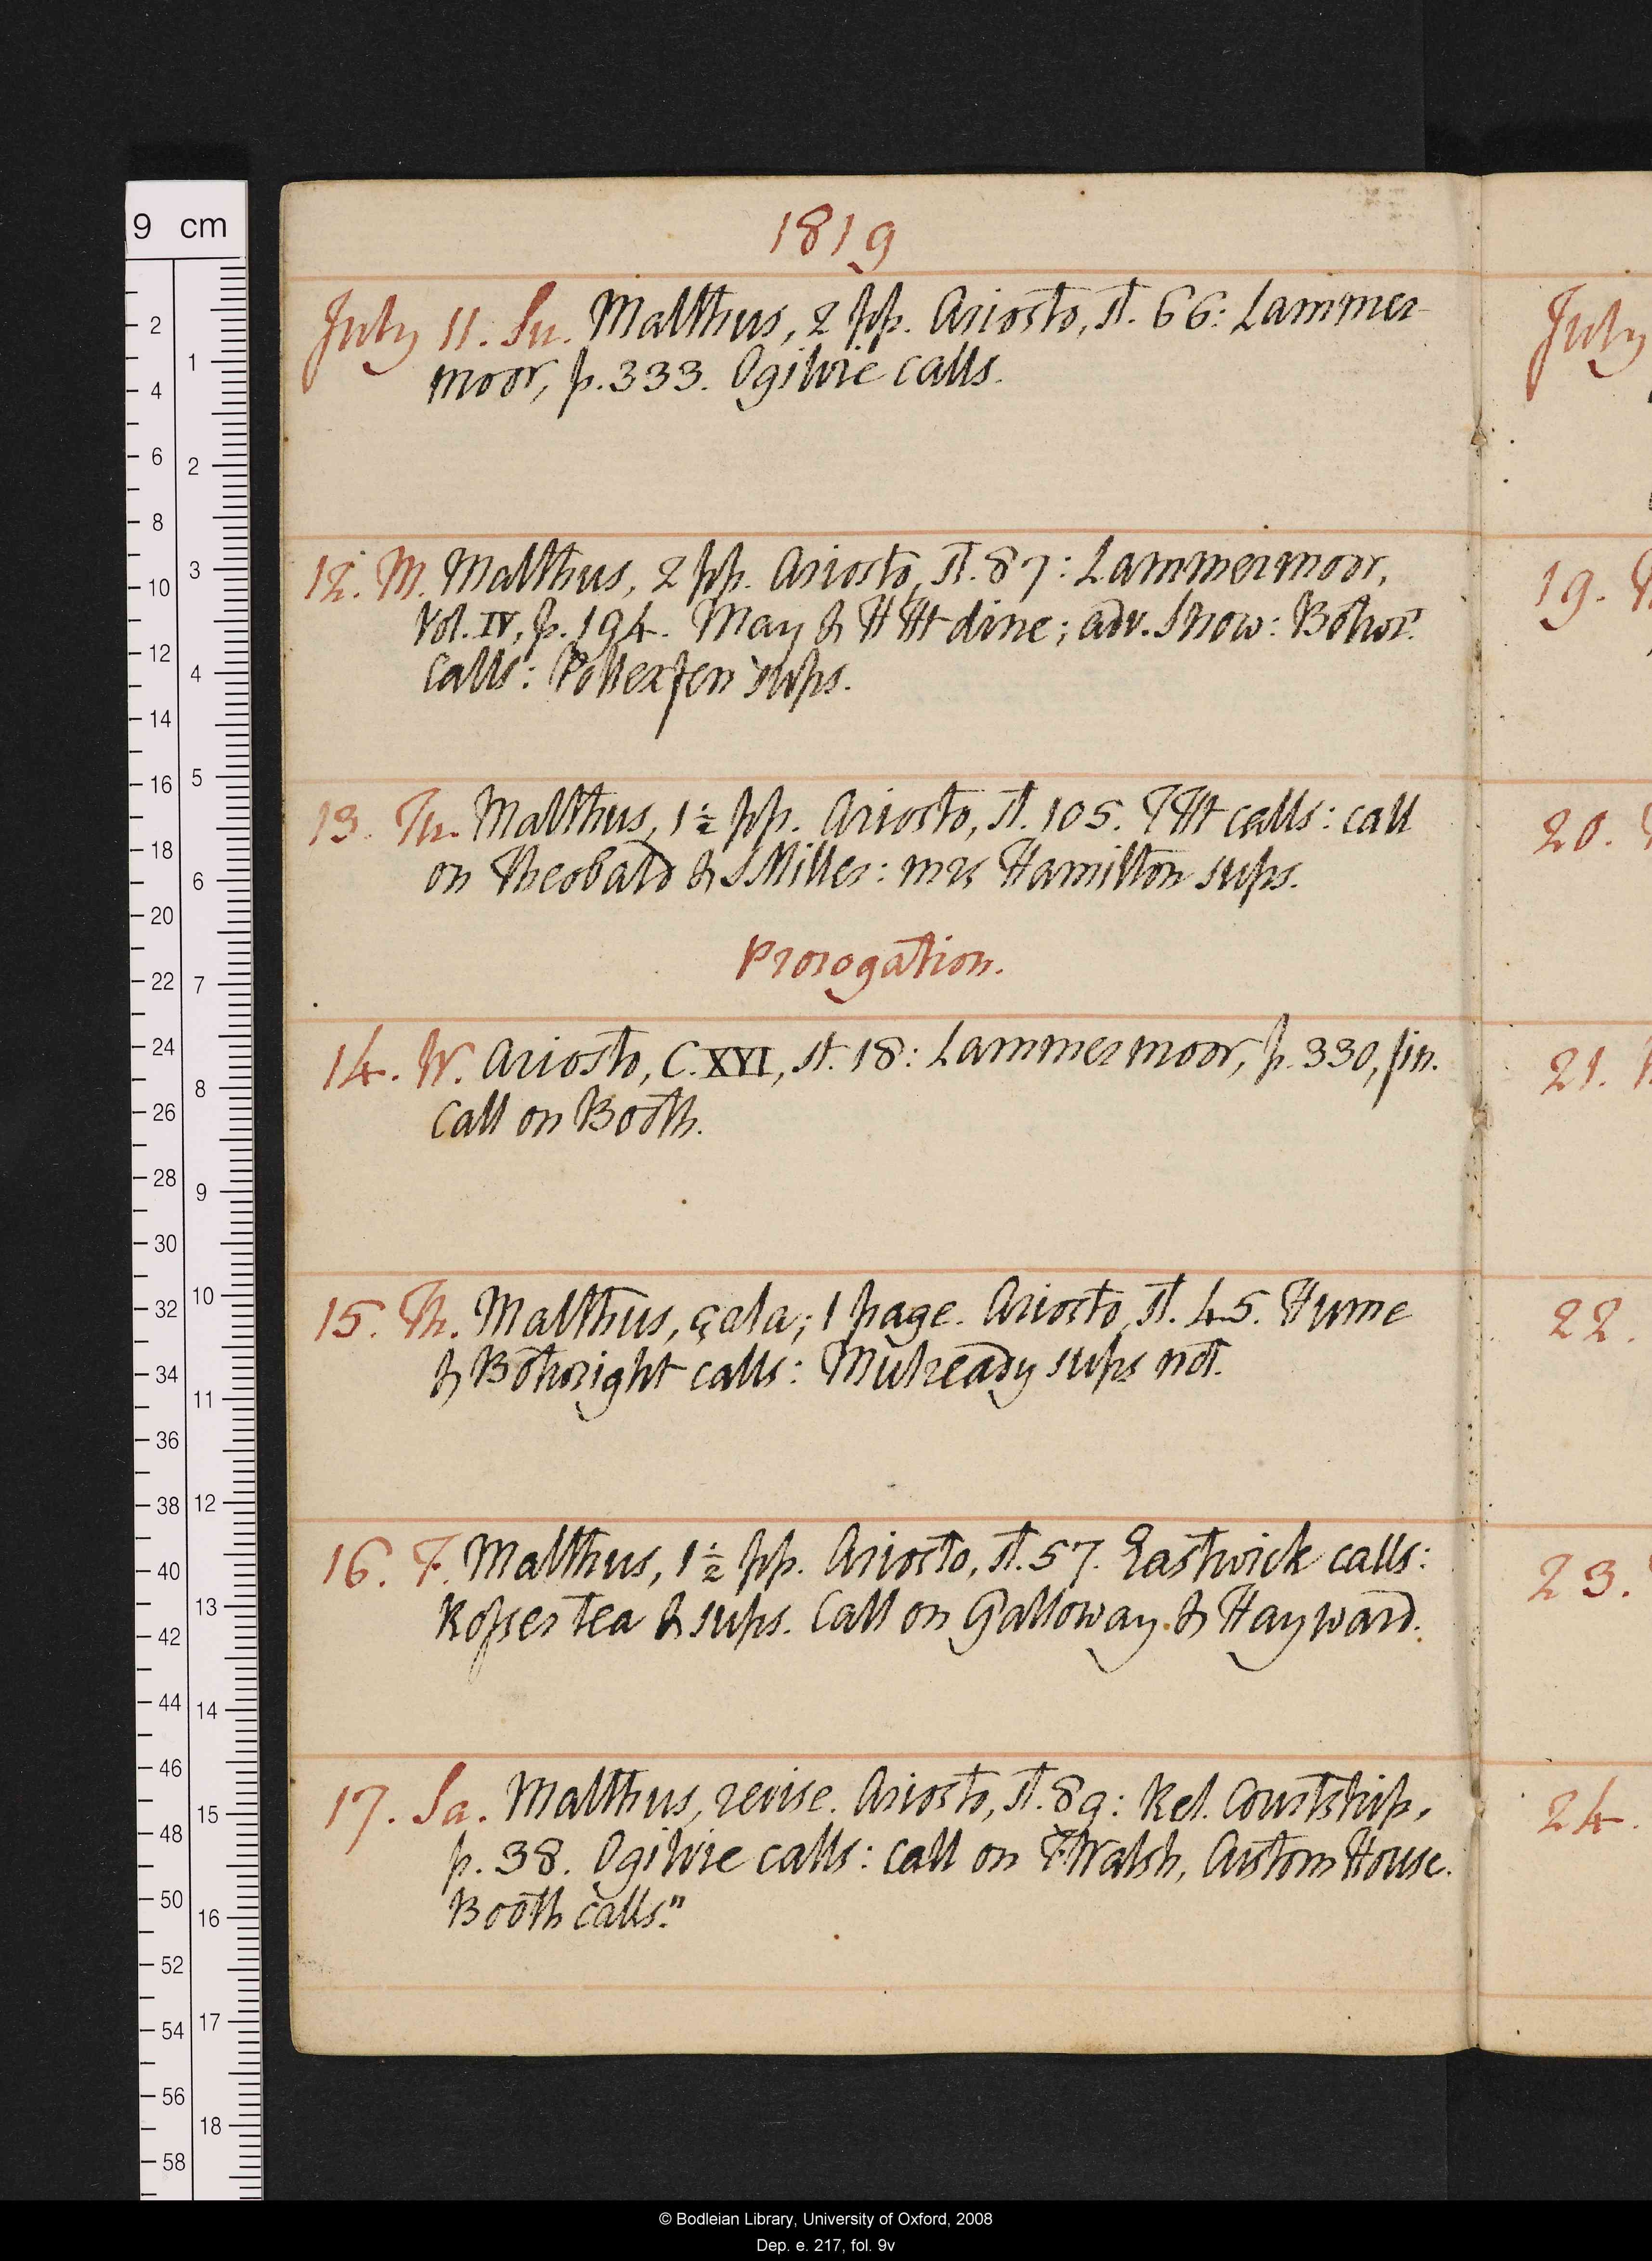 1819
July 11. Su. Malthus, 2 pp. Ariosto, st. 66: Lammer-
moor, p. 333. Ogilvie calls.
12. M. Malthus, 2 pp. Ariosto, st. 87: Lammermoor,
Vol. IV, p. 194. May & HHt dine; adv. Snow: Bothwt.
calls: Pollexfen sups.
13. Tu. Malthus, 1½ pp. Ariosto, st. 105. THt calls: call
on Theobald & SMiller: mrs Hamilton sups.
Prorogation.
14. W. Ariosto, C. XVI, st. 18: Lammermoor, p. 330, fin.
Call on Booth.
15. Th. Malthus, çala; 1 page. Ariosto, st. 45. Hume
& Bothwright calls: Mulready sups not.
16. F. Malthus, 1½ pp. Ariosto, st. 57. Eastwick calls:
Rosser tea & sups. Call on Galloway & Hayward.
17. Sa. Malthus, revise. Ariosto, st. 89: Rel. Courtship,
p. 38. Ogilvie calls: call on FWalsh, Custom House.
Booth calls."
July
19.
20.
21.
22.
23.
24.
9 cm
2
4
6
8
10
12
14
16
18
20
22
24
26
28
30
32
34
36
38
40
42
44
46
48
50
52
54
56
58
1
2
3
4
5
6
7
8
9
10
11
12
13
14
15
16
17
18
© Bodleian Library, University of Oxford, 2008
Dep. e. 217, fol. 9v